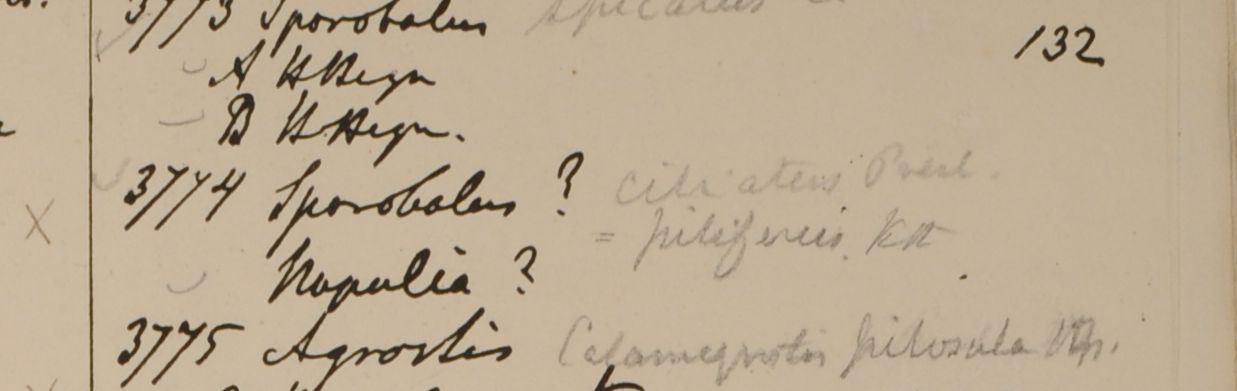 3773 Sporobolus spicatus
132
A H.Hügn
B H.Hügn.
3774 Sporobolus ? ciliatus Presl.
= piliferus. Kth
Napalia ?
3775 Agrostis Calamagrostis pilosula